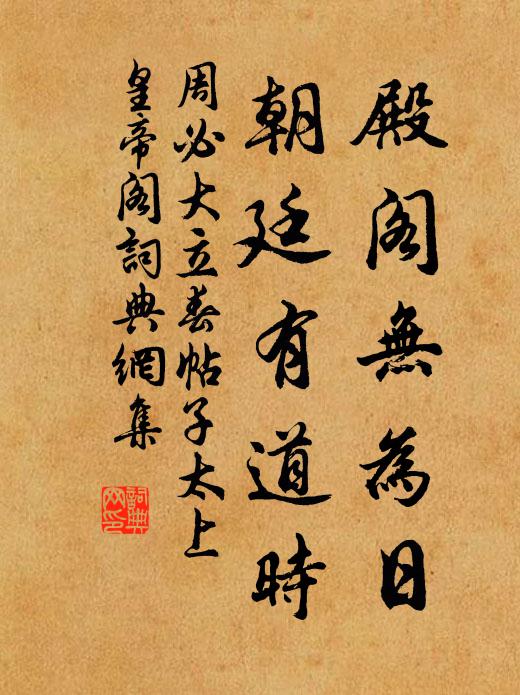 殿閣無為日
朝廷有道時
周必大立春帖子太上
皇帝閣詞典網集
詞典网印